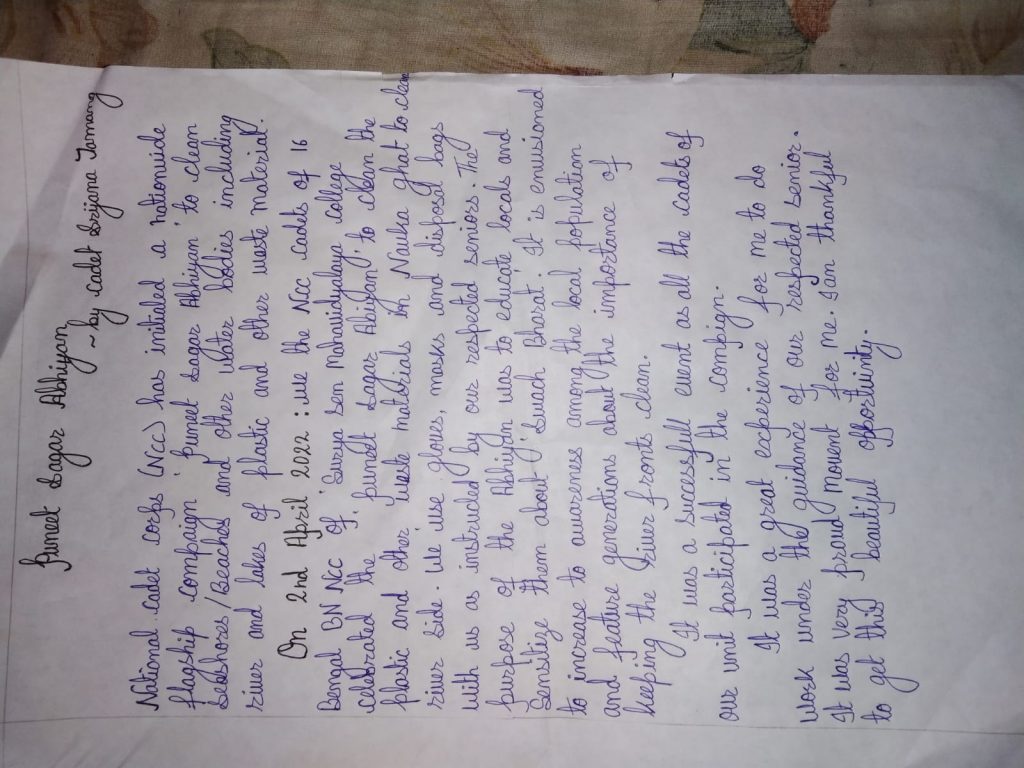 Puneet Sagar Abhiyan
~ by cadet Srijana Tamang
National cadet corps (NCC) has initialed a nationwide
flagship compaign 'puneet sagar Abhiyan' to clean
seashores/Beaches and other water bodies including
river and lakes of plastic and other waste material.
On 2nd April 2022 : we the NCC cadets of 16
Bengal BN NCC of 'Surya Sen Mahavidyalaya college
celebrated the 'puneet sagar Abiyan' to clean the
plastic and other waste materials by Nauka ghat to clean
river side. we use gloves, masks and disposal bags
with us as instructed by our respected seniors. The
purpose of the Abhiyan was to educate locals and
Sensitize them about 'Swach Bharat'. It is envisioned
to increase to awareness among the local population
and feature generations about the importance of
keeping the River fronts clean.
It was a successfull event as all the cadets of
our unit participated in the compaign.
It was a great experience for me to do
work under the guidance of our respected senior.
It was very proud movent for me. I am thankful
to get this beautiful opportuinty.